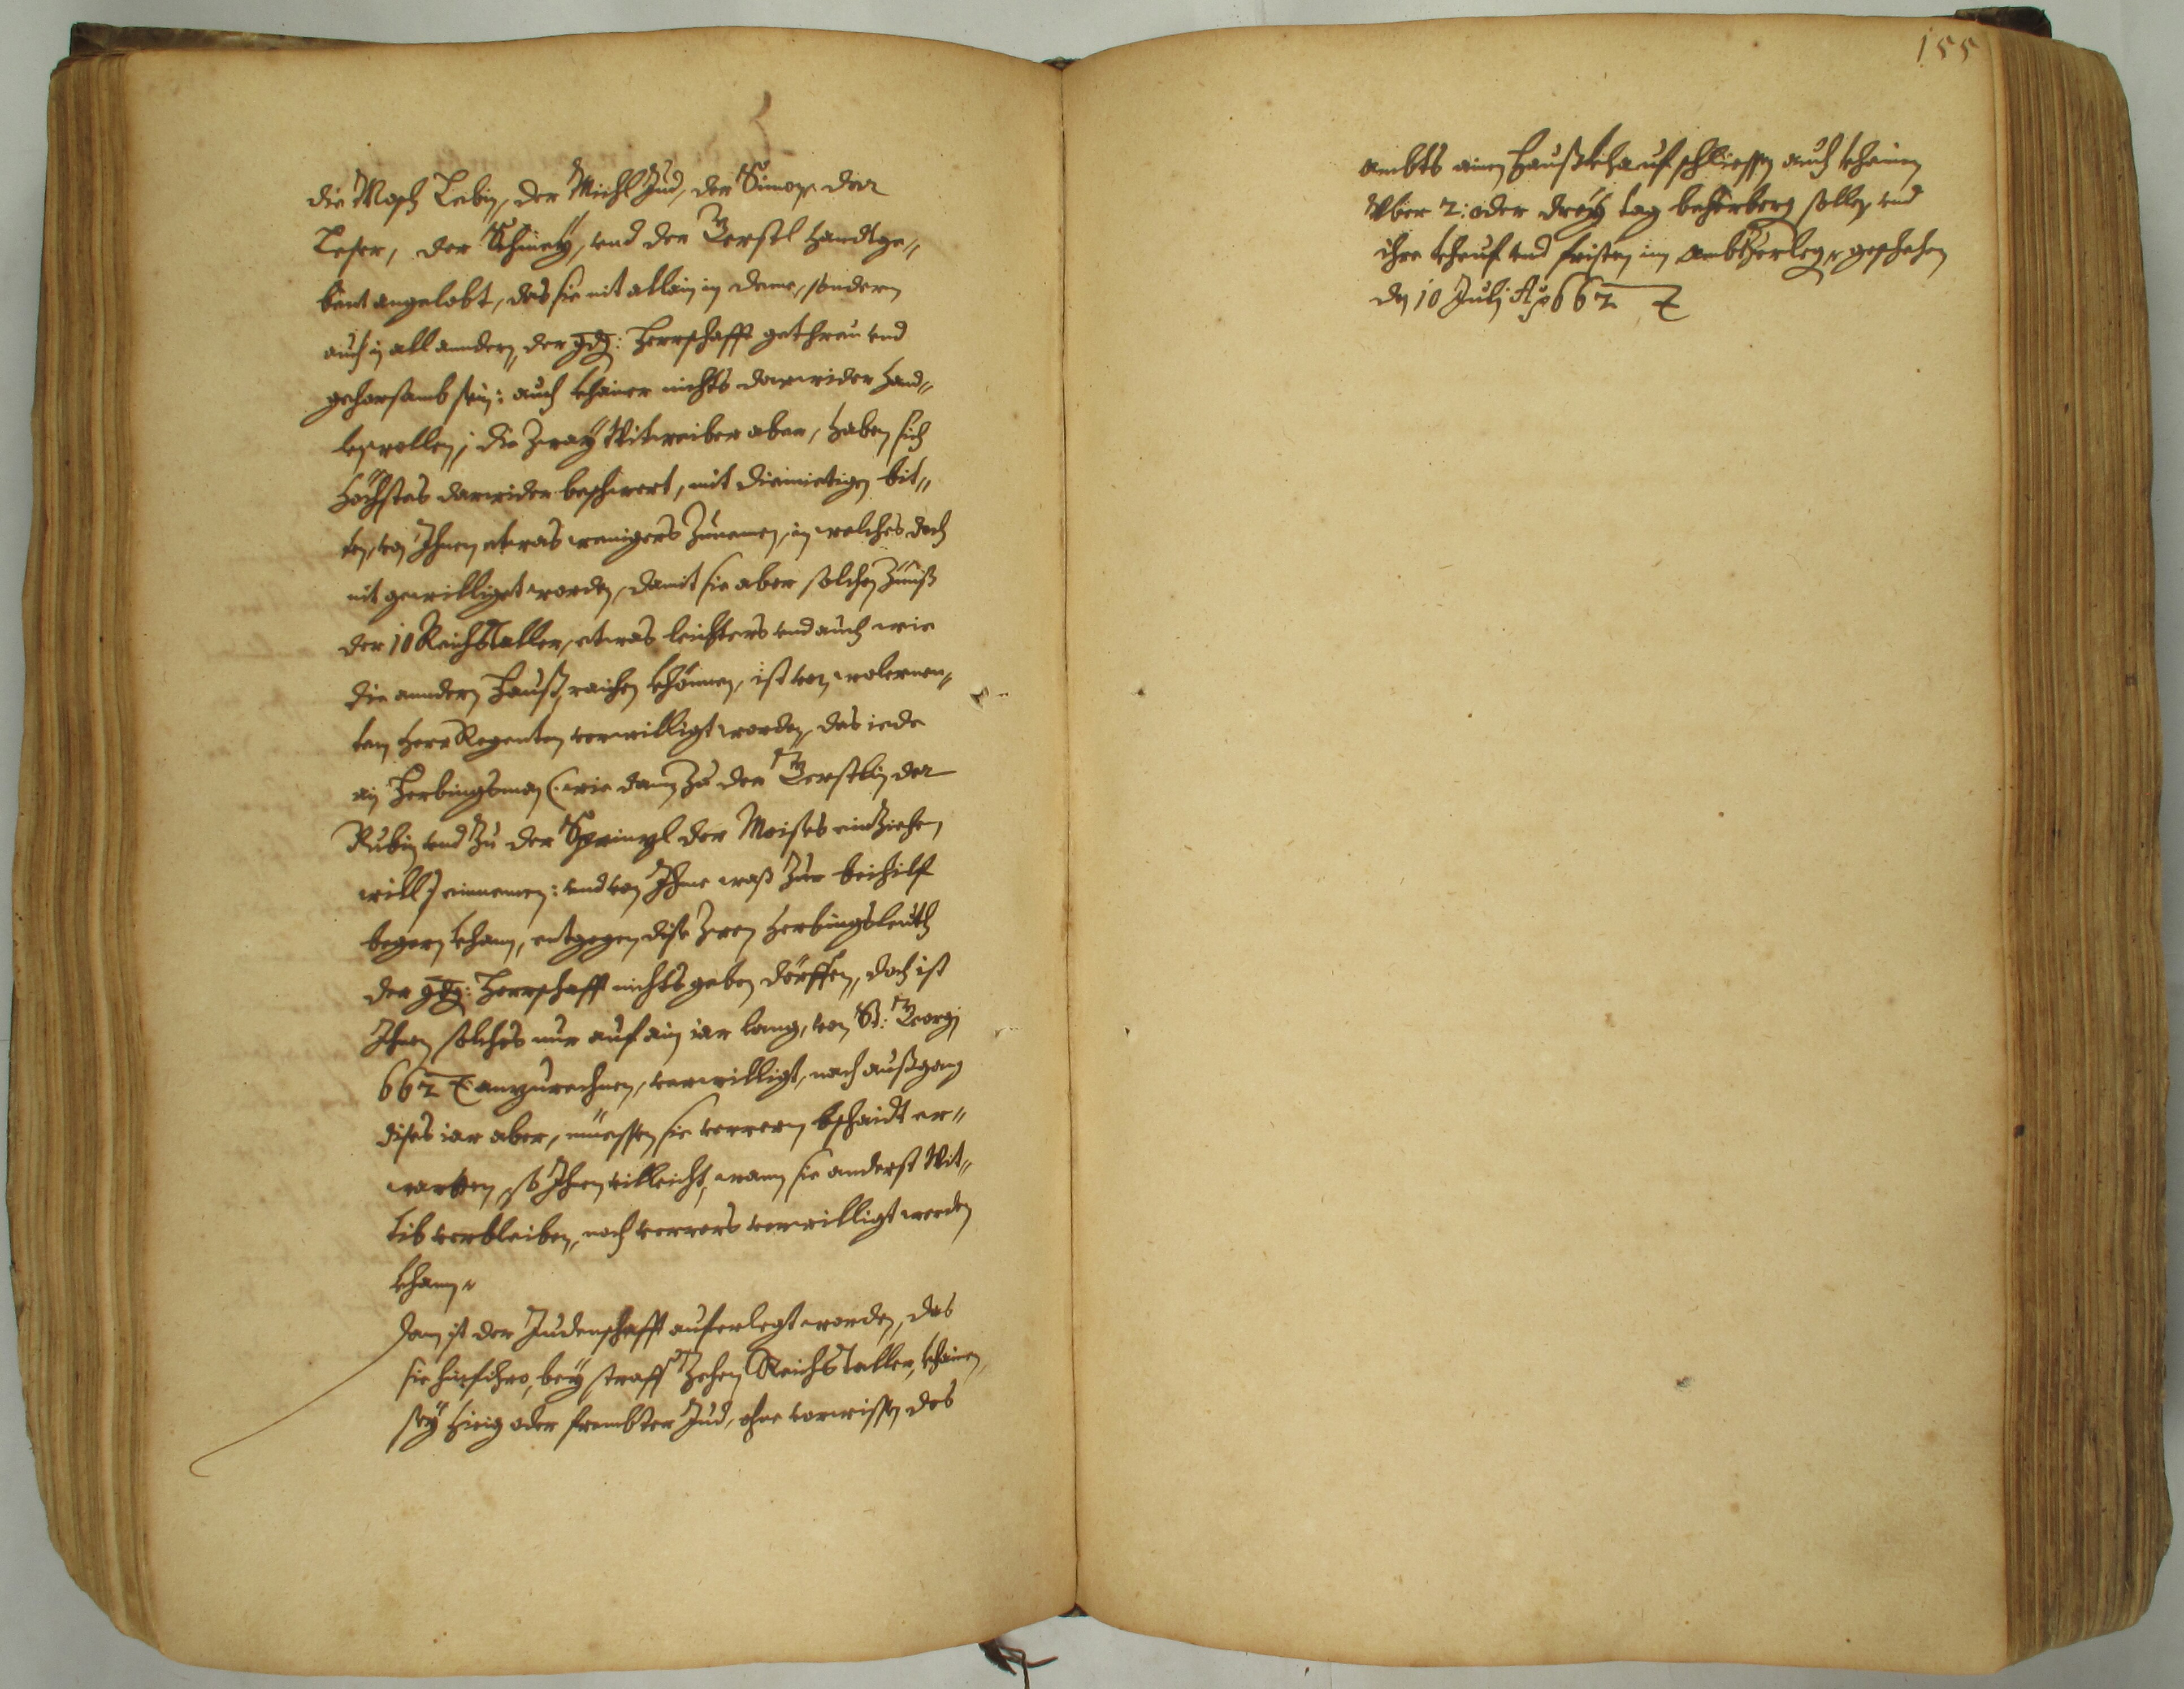 die Mosch Lebin, der Michl Jud, der Simon der
Leser, der Schmey, und der Gerstl handtge„
bent angelobt, das sie nit allein in deme, sondern
auch in all anndern, der gdg: Herrschafft gethreu und
gehorsamb sein: auch khainer nichts darwider hand„
len wollen, die zway Witweiber aber, haben sich
höchstes darwider beschwert, mit diemietigen bit„
ten, von Ihnen etwas wenigers zunemen, in welches doch
nit gewilliget worden, damit sie aber solchen Zünß
der 10 Reichstaller, etwas leichters und auch wie
die anndern Hauß, raichen khönnen, ist von wolernen„
ten Herr Regenten verwilligt worden, das iede
ein Herbingsman (wie dann zu der Gerstlin der
Rubin und zu der Sprinzl der Moises einziehen
will) einnemen: und von Ihme waß zur beihilf
begern khann, entgegen dise zwen Herbingsleuth
der gdg: Herrschafft nichts geben dörffen, doch ist
Ihnen solches nur auf ain iar lang, von St: Georgi
662 anzurechnen, verwilligt, nach außgang
dises iar aber, müessen sie verrern bschaidt er„
warten, so Ihnen villeicht, wann sie anderst Wit„
tib verbleiben, noch verrers verwilligt werden
khann.
Dann ist der Judenschafft auferlegt worden, das
sie hinfihro, bey straff zehen Reichstaller, khainen
sey hieig oder frembter Jud, ohne vorwissen des
155
ambts ainen Haußkhauf schliessen auch khainen
Uber 2: oder drey tag beherberg sollen, und
ihre kheuf und fristen im ambt erlegen, geschehen
den 10 Julj Ao 662